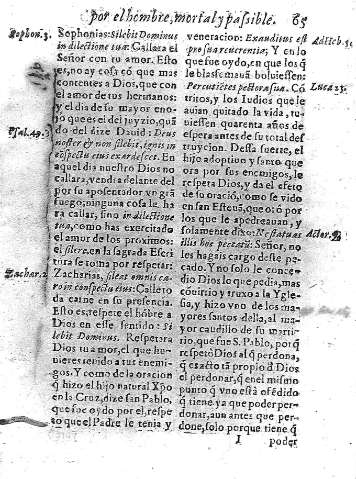 por el hombre, mortal y passible. 65
Sophon. 3.
Sophonias: Silebit Dominus
in dilectione tua: Callara el
Señor con tu amor. Esto
es, no ay cosa cõ que mas
contentes a Dios, que con
el amor de tus hermanos:
y el dia de su mayor eno-
jo que es el del juyzio, quã
do del dize Dauid: Deus
Psal. 49.
noster & non silebit, ignis in
cõspectu eius exardescet. En
aquel dia nuestro Dios no
callara, vendra delante del
por su aposentador vn grã
fuego, ninguna cosa le ha
ra callar, sino in dilectione
tua, como has exercitado
el amor de los proximos:
el silere, en la sagrada Escri
tura se toma por respetar:
Zachar. 2.
Zacharias, sileat omnis ca-
ro in conspectu eius: Calle to
da carne en su presencia.
Esto es, respete el hõbre a
Dios en este sentido: Si
lebit Dominus. Respetara
Dios tu amor, el que hu-
uieres tenido a tus enemi-
gos. Y como de la oracion
q̃ hizo el hijo natural Xp̃o
en la Cruz, dize san Pablo,
que fue oydo por el respe
to que el Padre le tenia y
veneracion: Exauditus est
Ad Heb. 5.
pro sua reuerentia; Y en lo
que fue oydo, en que los q̃
le blasfemauã boluiessen:
Percutiẽtes pectora sua. Cõ
Luc. 23.
tritos, y los Iudios que le
auian quitado la vida, tu-
uiessen quarenta años de
espera antes de su total des
truycion. Desta suerte, el
hijo adoption y santo que
ora por sus enemigos, le
respeta Dios, y da el efeto
de su oración, como se vido
en san Esteuã, que oró por
los que le apedreauan, y
solamente dixo: Ne statuas
Actor. 7.
illis hoc peccatũ: Señor, no
les hagais cargo deste pe-
cado. Y no solo le conce-
dio Dios lo que pedia, mas
cõuirtio y truxo a la Ygle-
sia, y hizo vno de los ma-
yores santos della, al ma-
yor caudillo de su marti-
rio, que fue S. Pablo, porq̃
respetò Dios al q̃ perdona,
q̃ es acto tã propio d̃ Dios
el perdonar, q̃ en el mismo
punto q̃ vno està ofẽdido
q̃ tiene ya que poder per-
donar, aun antes que per-
done, solo porque tiene q̃
I poder